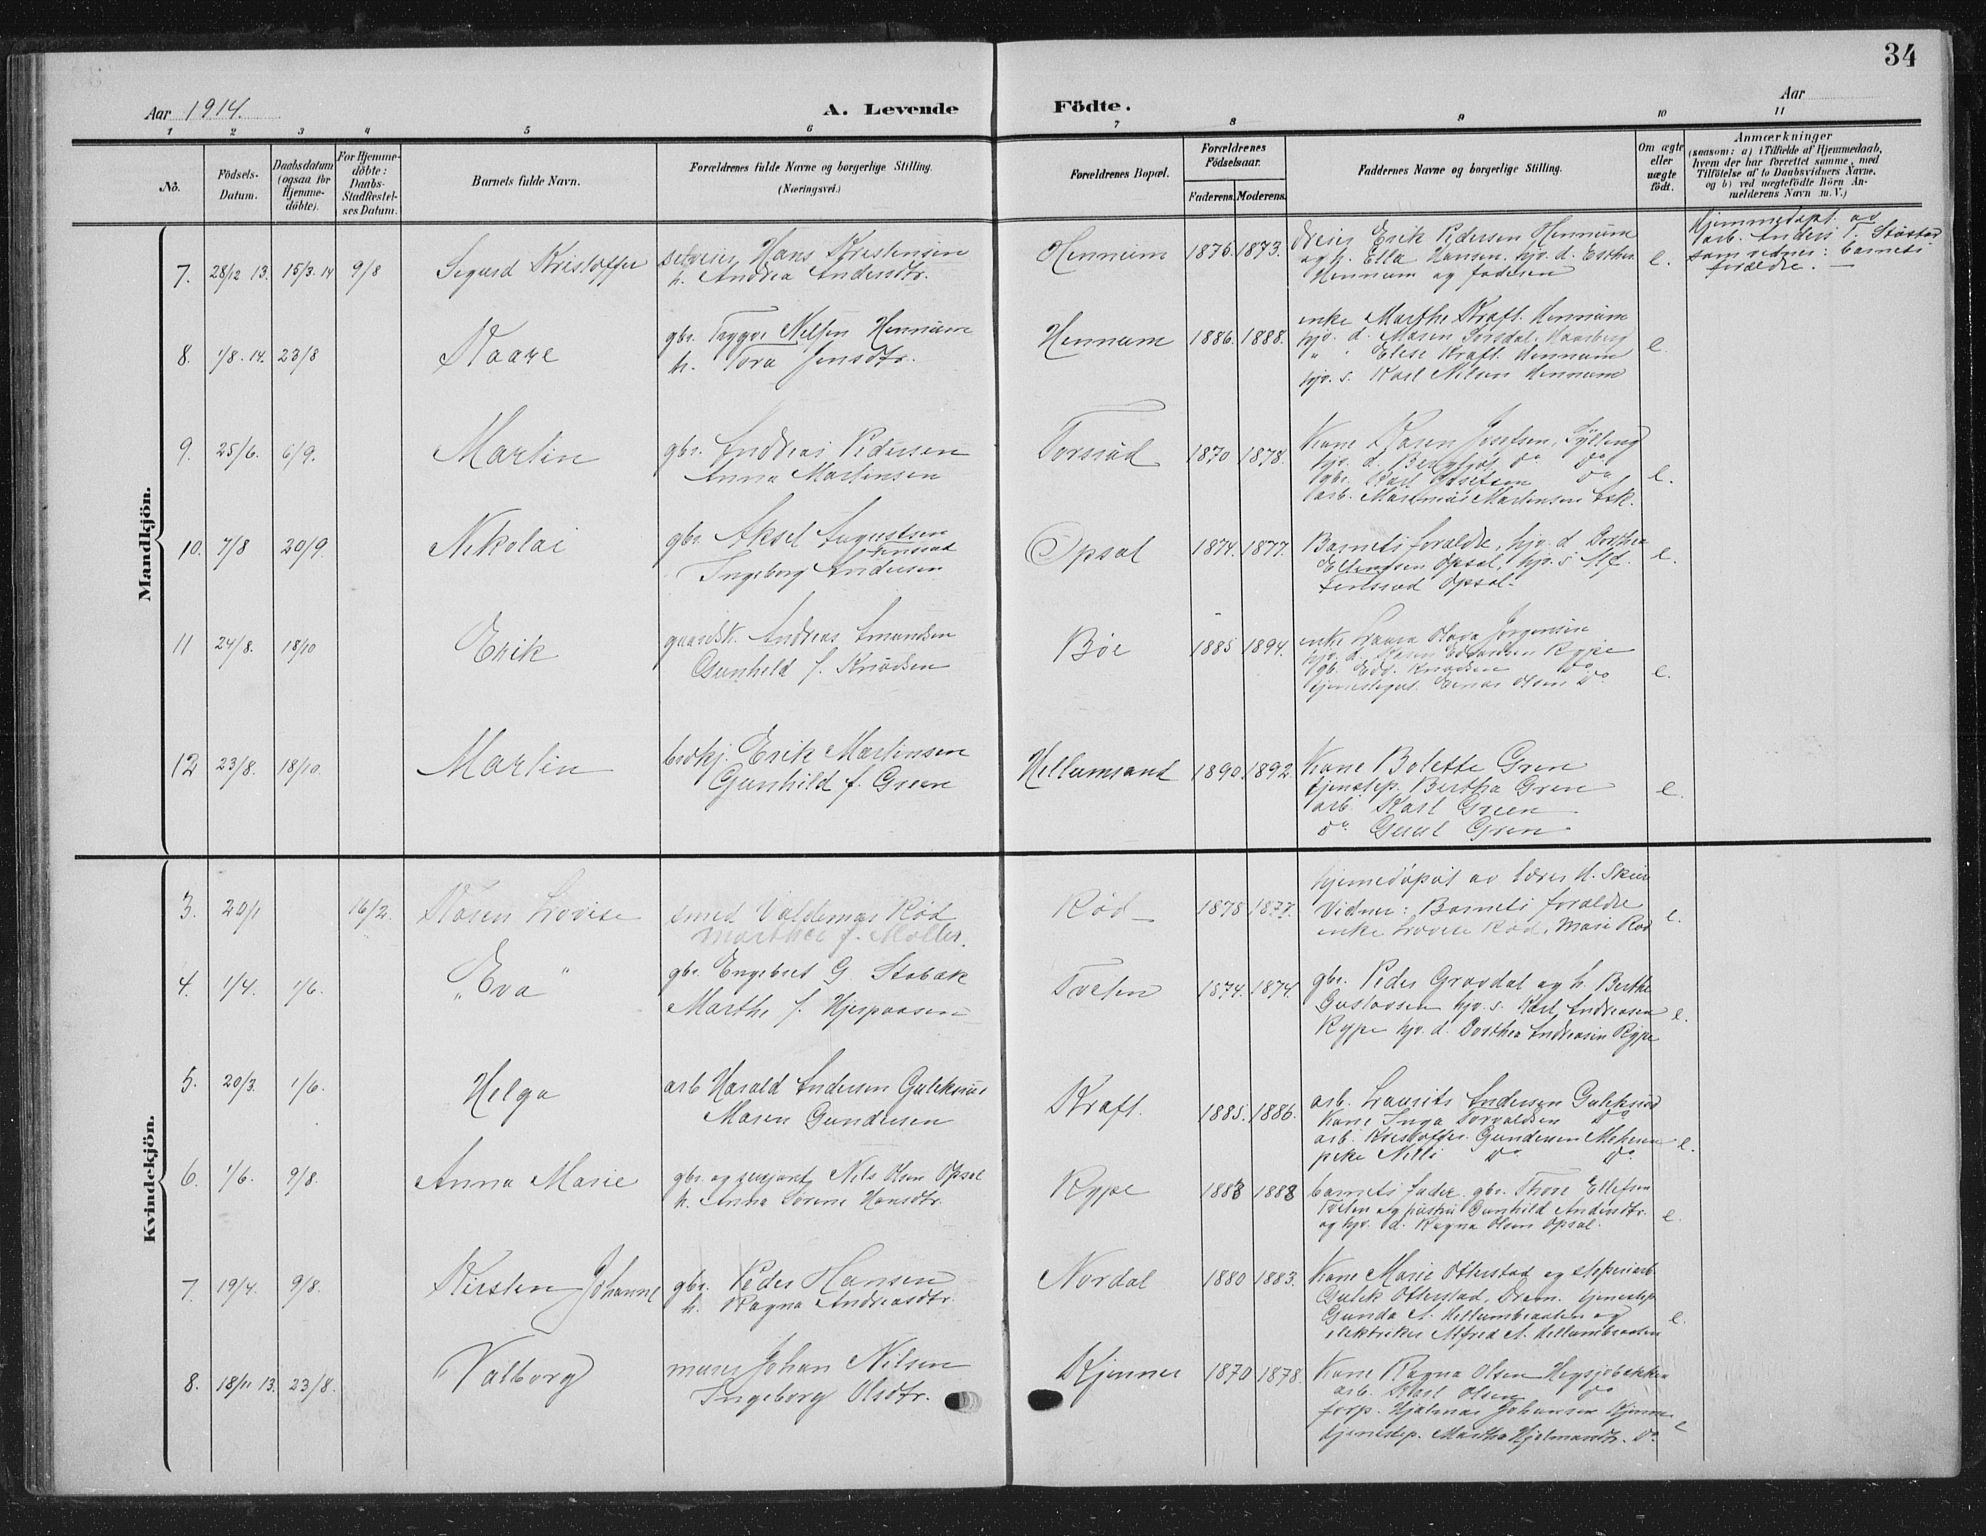 34
Aar 1914. A. Levende Födte. Aar
1 2 3 4 5 6 7 8 9 10 11
No.
Födsels-Datum.
Daabsdatum (ogsaa for Hjemme-döbte).
For Hjemme-döbte: Daabs-Stadfæstel-ses Datum.
Barnets fulde Navn.
Forældrenes fulde Navne og borgerlige Stilling.
(Næringsvei.)
Forældrenes Bopæl.
Forældrenes Födselsaar.
Faderens. Moderens.
Faddernes Navne og borgerlige Stilling.
Om ægte eller uægte födt.
Anmærkninger
(saasom: a) i Tilfælde af Hjemmedaab, hvem der har forrettet samme, med Tilföielse af to Daabsvidners Navne, og b) ved uægtefödte Börn An-melderens Navn m. V.)
Mandkjön.
7. 28/12 13. 15/3. 14 9/8 Sigurd Kristoffer
selveier Hans Kristensen
h. Andrea Andersdtr.
Hennum 1876. 1873.
Erik Pedersen Hennum
og h. Ella Hansen. hjv. d. Esther
Hennum og faderen e.
Hjemmedøpt av
arb. Anders T.
som vidner: barnets
forældre. —
8. 1/8. 14. 23/8 Kaare
gbr. Trygve Nilsen Hennum
h. Tora Jensdtr.
Hennum 1886. 1888.
enke Marthe Kraft. Hennum
hjv. d. Maren
" " Elise Kraft. Hennum
hjv. s. Karl Nilsen Hennum e.
9. 25/6. 6/9. Martin
gbr. Andreas Pedersen
Anna Martinsen
Torsrud 1870 1878.
Kone Karen Josefsen, Sylling
hjv. d. Bergljot do do
gbr. Karl Josefsen do
arb. Martinius Martinsen e.
10. 7/8 20/9. Nikolai
gbr. Aksel Augustsen
Ingeborg Andersen
Opsal 1874. 1877.
Barnets forældre, hjv. d. Dorthea
Ellingsen Opsal, hjv. s.
Opsal. e.
11 24/8. 18/10 Erik
gaardbr. Andreas Amundsen
Gunhild f. Knudsen
Bøe 1885 1894.
enke Laura Olava Jørgensen
hjv. d. Rype
gb. Edv. Knudsen do
Einar Olsen do e.
12 23/8. 18/10. Martin
Erik Martinsen
Gunhild f. Green
Hellumsand 1890. 1892.
Kone Bolette Gren
tjenestep. Bertha Gren
arb. Karl Green
do Gren e.
Kvindekjön.
3. 20/1 16/2. Karen Lovise
smed Valdemar Rød
Marthea f. Møller.
Rød 1878 1877.
hjemedøpt av lærer H. Skui
Vidner: Barnets forældre
enke Lovise Rød, Mari Rød e.
4. 1/4. 1/6. "Eva"
gbr. Engebret G Stabæk
Marthe f. Hjerpaasen
Tveten 1874. 1874.
gbr. Peder Gravdal og h. Berthe
Gustavsen hjv. s. Karl Andreasen
Rype hjv. d. Dorthea Andreasen Rype e.
5. 20/3. 1/6. Helga
arb Harald Andersen Guleksrud
Maren Gundersen
Kraft. 1885. 1886.
arb. Laurits Andersen Guleksrud
Kone Inga Torvaldsen do
arb. Kristoffer Gundersen
pike Nilli do do e.
6. 1/6. 9/8. Anna Marie
gbr. og sersjant Nils Olsen Opsal
h. Anna Lorense Hansdtr.
Rype 1883 1888
barnets fader. gbr. Thore Ellefsen
Tveten og hustru Gunhild Andersdtr.
og hjv. d. Ragna Olsen Opsal. e.
7. 19/4. 9/8. Kirsten Johanne
gbr. Peder Hansen
h. Ragna Andreasdtr.
Nordal 1880 1883.
Kone Marie Otterstad og
Gulek Otterstad, Dram. tjenestep
Gunda A. Hellumbraaten og
elektriker Alfred A. Hellumbraaten e.
8. 18/11 13. 23/8. Valborg
murer Johan Nilsen
Ingeborg Olsdtr.
Kjinnes 1870 1878.
Kone Ragna Olsen Hegsjobakken
arb. Karl Olsen do
forp. Hjalmar Johansen
tjenestep. Martha Hjelmansdtr. do. e